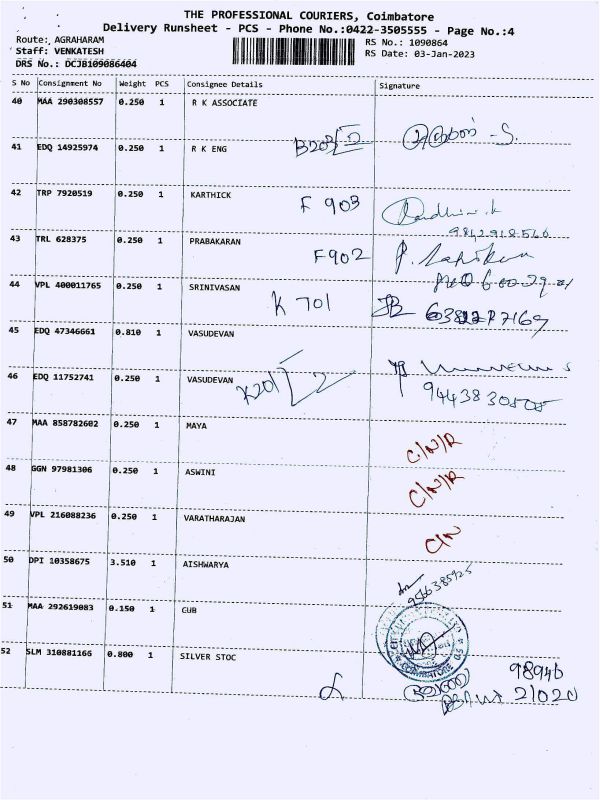 THE PROFESSIONAL COURIERS, Coimbatore
Delivery Runsheet - PCS - Phone No.:0422-3505555 - Page No.:4
Route: AGRAHARAM
Staff: VENKATESH
DRS No.: DCJB109086404
RS No.: 1090864
RS Date: 03-Jan-2023
S No Consignment No Weight PCS Consignee Details Signature
40 MAA 290308557 0.250 1 R K ASSOCIATE
41 EDQ 14925974 0.250 1 R K ENG
42 TRP 7920519 0.250 1 KARTHICK F 903
43 TRL 628375 0.250 1 PRABAKARAN F902
44 VPL 400011765 0.250 1 SRINIVASAN K 701
45 EDQ 47346661 0.810 1 VASUDEVAN
46 EDQ 11752741 0.250 1 VASUDEVAN K201
47 MAA 858782602 0.250 1 MAYA C/N/R
48 GGN 97981306 0.250 1 ASWINI C/N/R
49 VPL 216088236 0.250 1 VARATHARAJAN C/N
50 DPI 10358675 3.510 1 AISHWARYA 9566385925
51 MAA 292619083 0.150 1 CUB
COIMBATORE
52 SLM 310881166 0.800 1 SILVER STOC 98946
21020